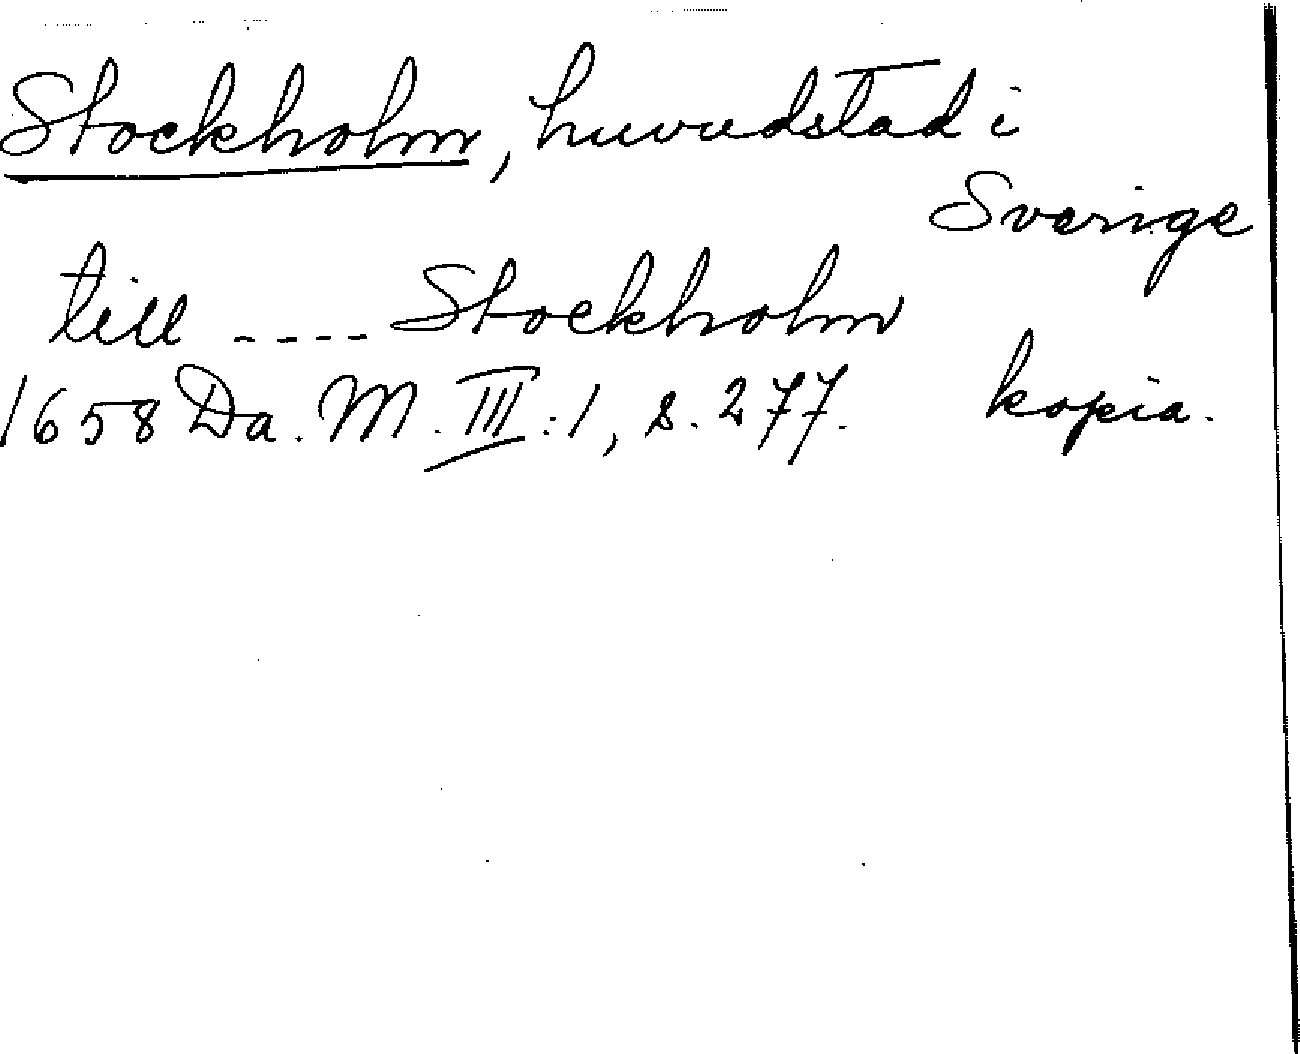 Stockholm, huvudstad i
Sverige
till ---- Stockholm
1658 Da. M. III:1, s. 277. kopia.